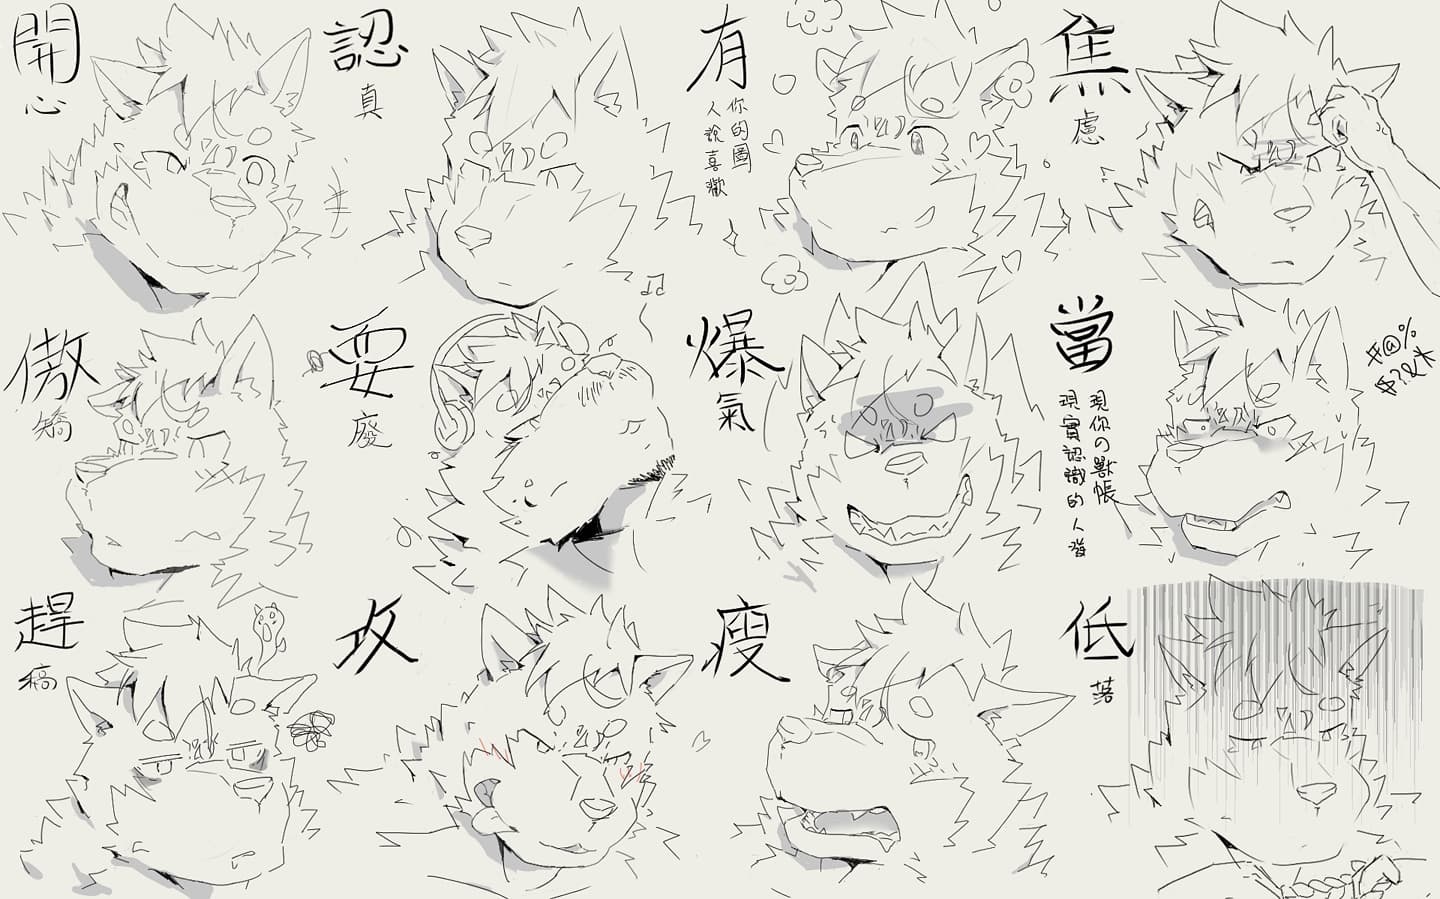 開心
認真
有人說喜歡
你的圖
焦慮
傲嬌
耍廢
爆氣
當現實認識的人發
現你の獸帳
#@%
$?&*
趕稿
攻
瘦
低落